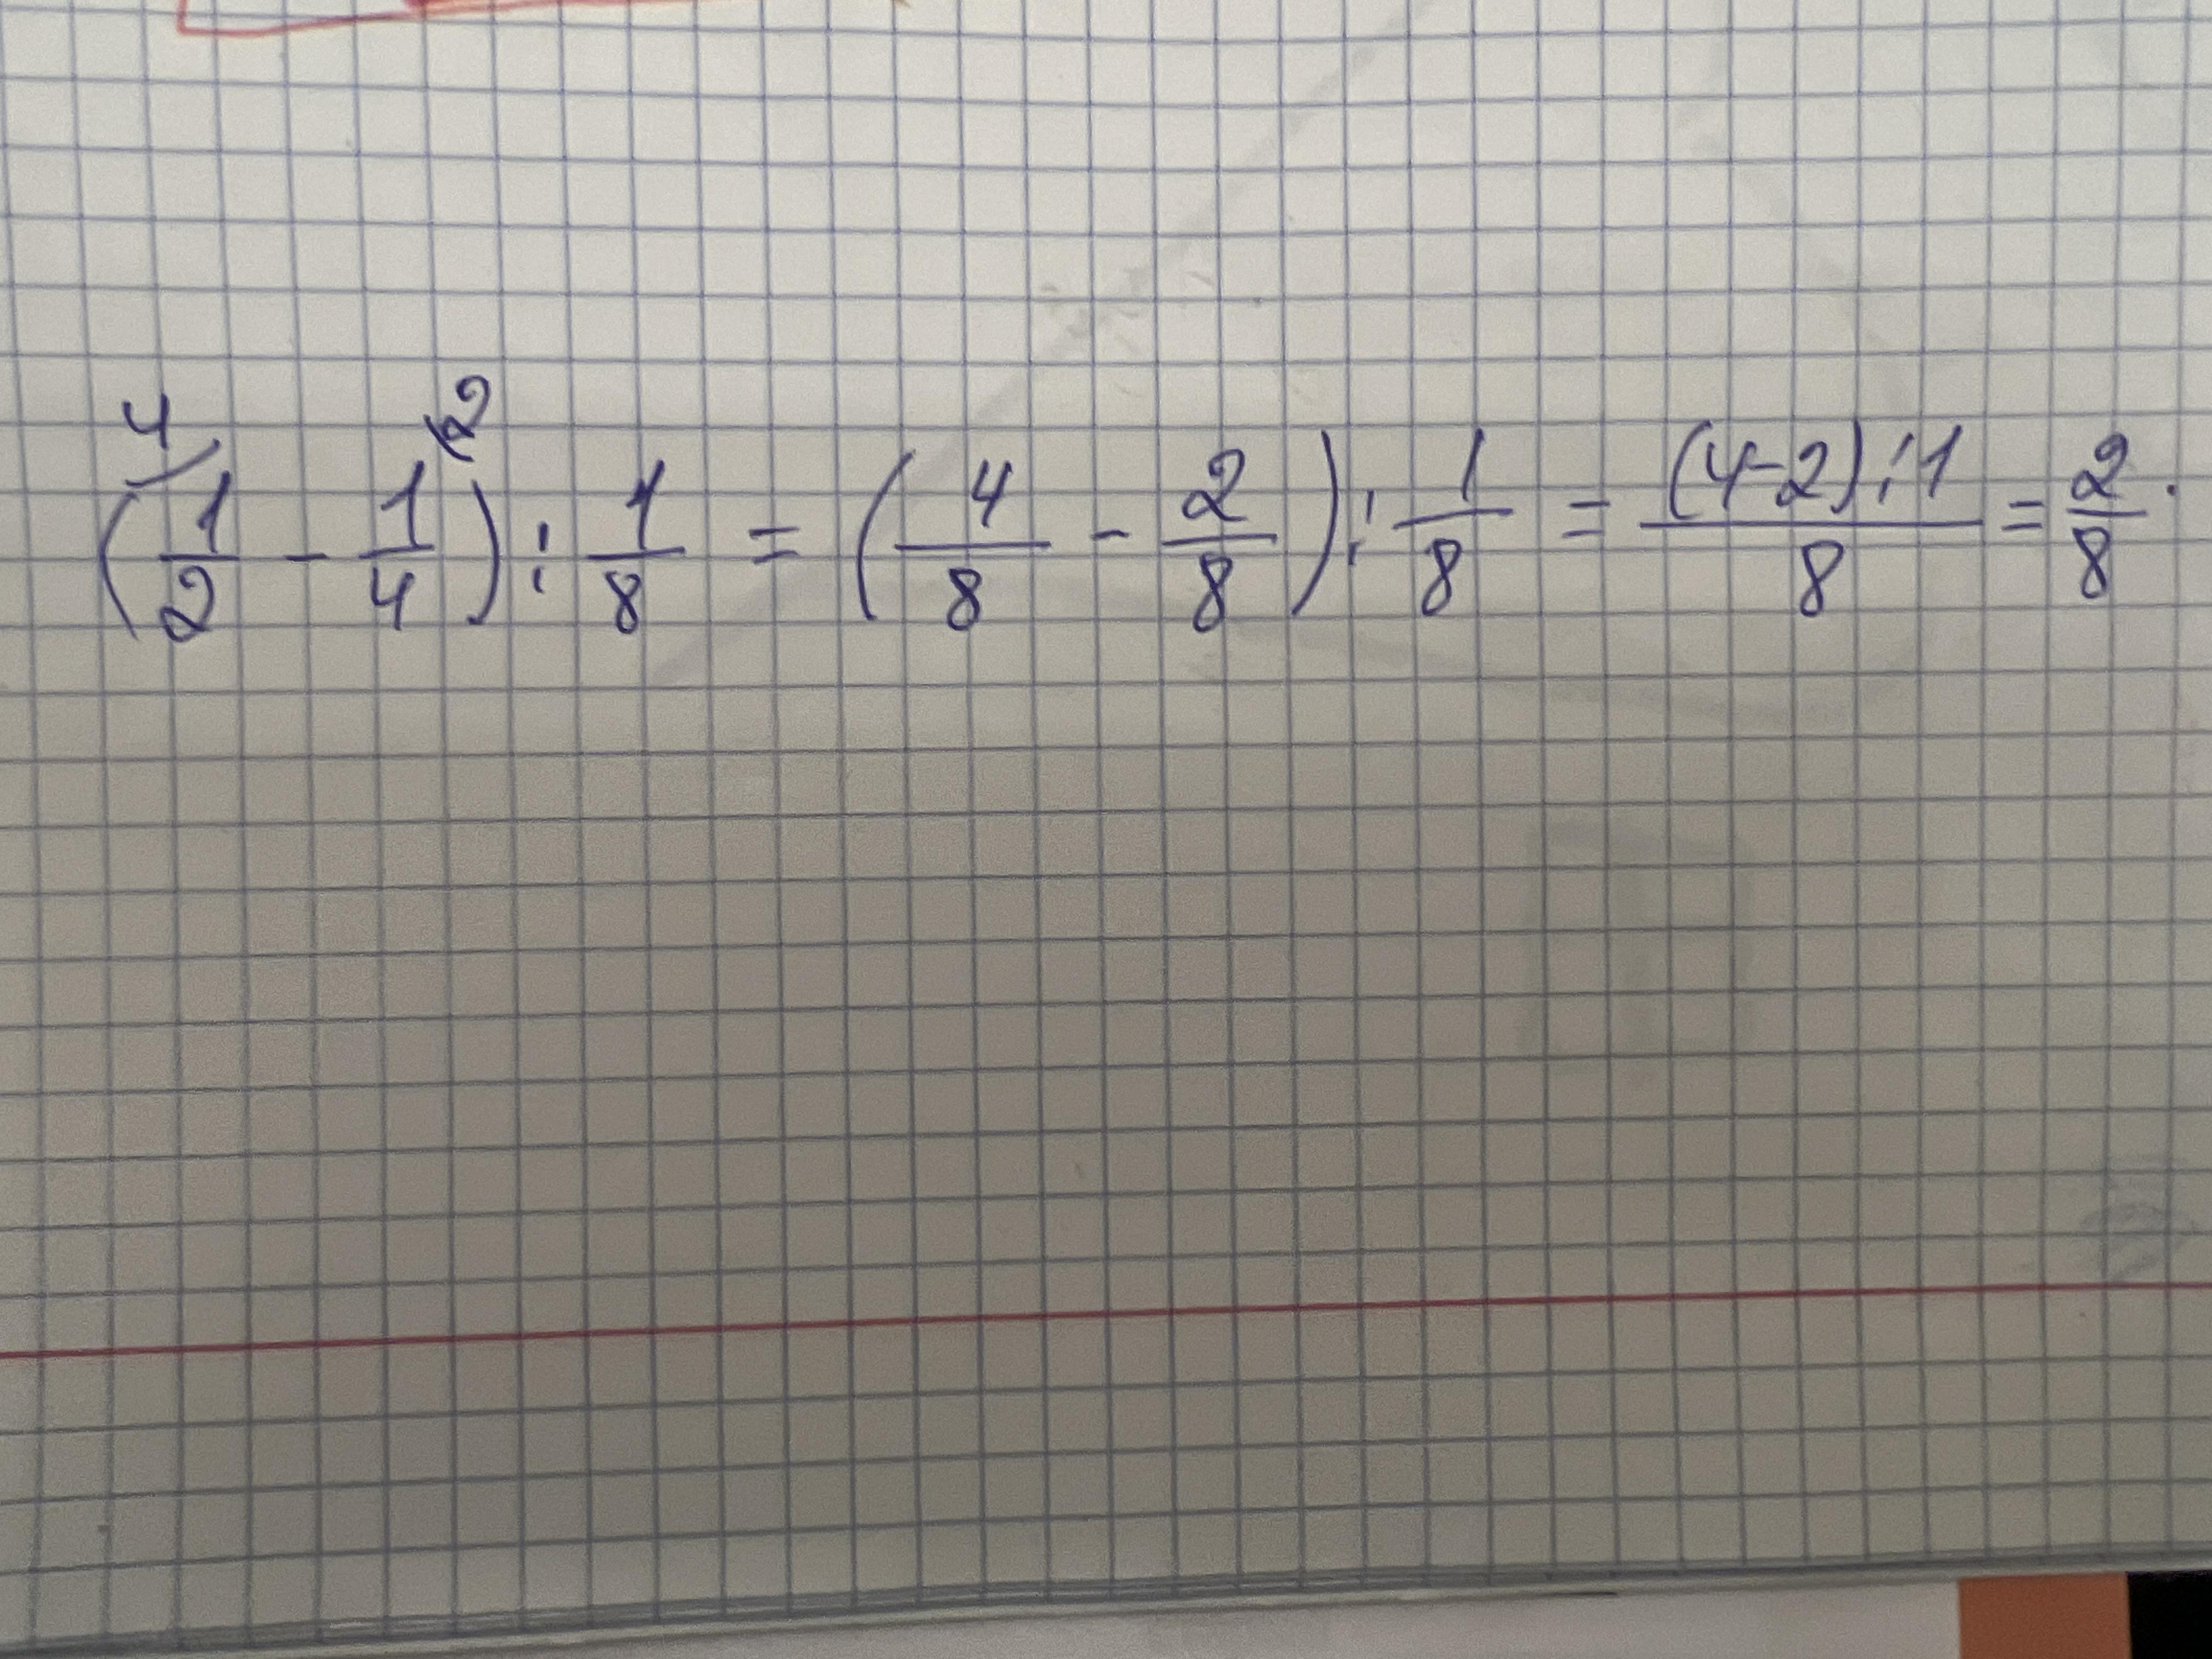 (4/ 1/2 - 1/4 (2) : 1/8 = (4/8 - 2/8) : 1/8 = (4-2):1/8 = 2/8.